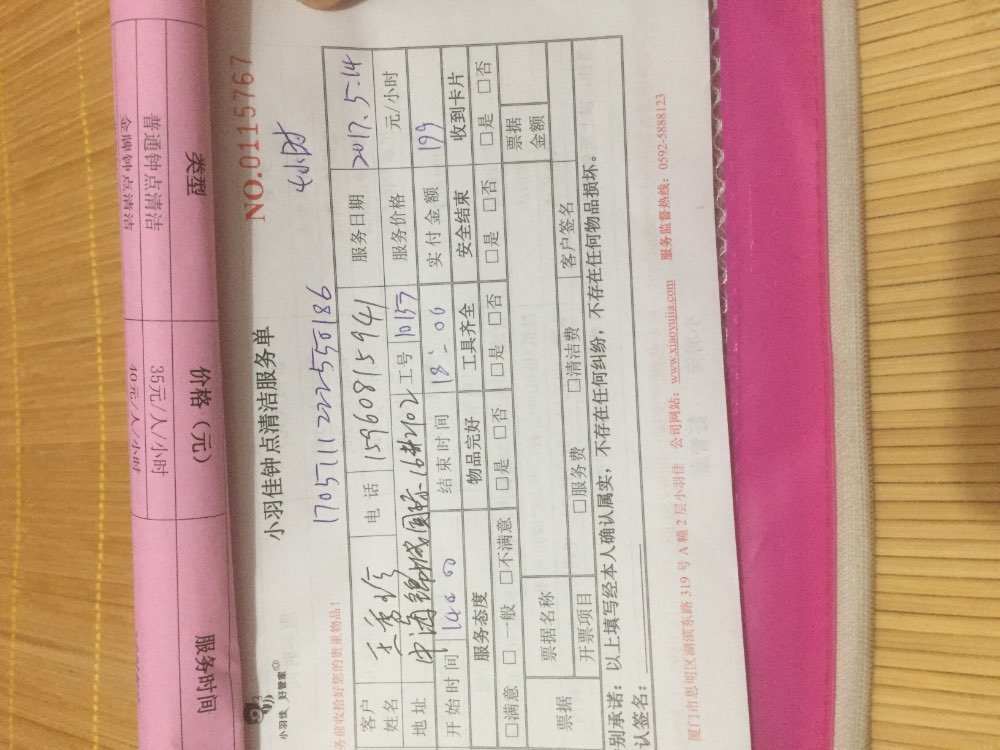 类型 价格（元） 服务时间
普通钟点清洁 35元/人/小时
金牌钟点清洁 40元/人/小时
NO.0115767
小羽佳 好管家
小羽佳钟点清洁服务单
4小时
务前收拾好您的贵重物品！
1705711222550186
客户姓名 王秀珍 电话 15960815941 服务日期 2017.5.14
地址 中海锦城国际 工号 10157 服务价格 元/小时
开始时间 14:00 结束时间 18:00 实付金额 199
服务态度 物品完好 工具齐全 安全结束 收到卡片
□满意 □一般 □不满意 □是 □否 □是 □否 □是 □否 □是 □否
票据 票据名称 票据金额
开票项目 □服务费 □清洁费 客户签名
别承诺：以上填写经本人确认属实，不存在任何纠纷，不存在任何物品损坏。
认签名：
厦门市思明区湖滨东路 319 号 A 幢 2 层小羽佳 公司网站：www.xiaoyujia.com 服务监督热线：0592-5888123